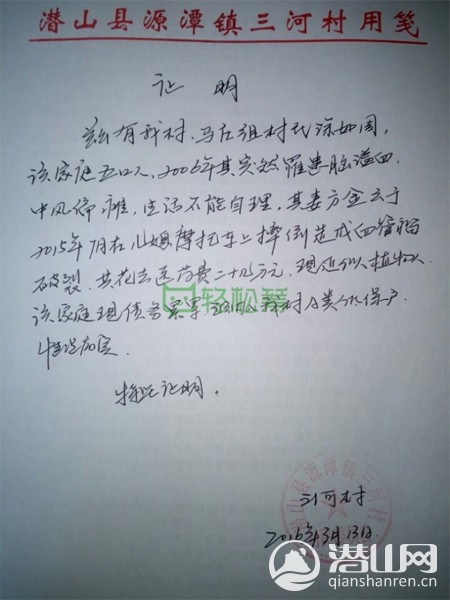 潜山县源潭镇三河村用笺
证 明
兹有我村马庄组村民涂如周,
该家庭五口人,2006年其突然罹患脑溢血
中风偏瘫,生活不能自理,其妻方金云于
2015年 月在儿媳摩托车上摔倒造成血管瘤
破裂,共花去医药费二十九万元,现近似植物人
该家庭现债务累累 我村 类低保户
情况属实.
特此证明.
轻松筹
三河村
2016年3月13日.
潜山县源潭镇三河村
潜山网
qianshanren.cn